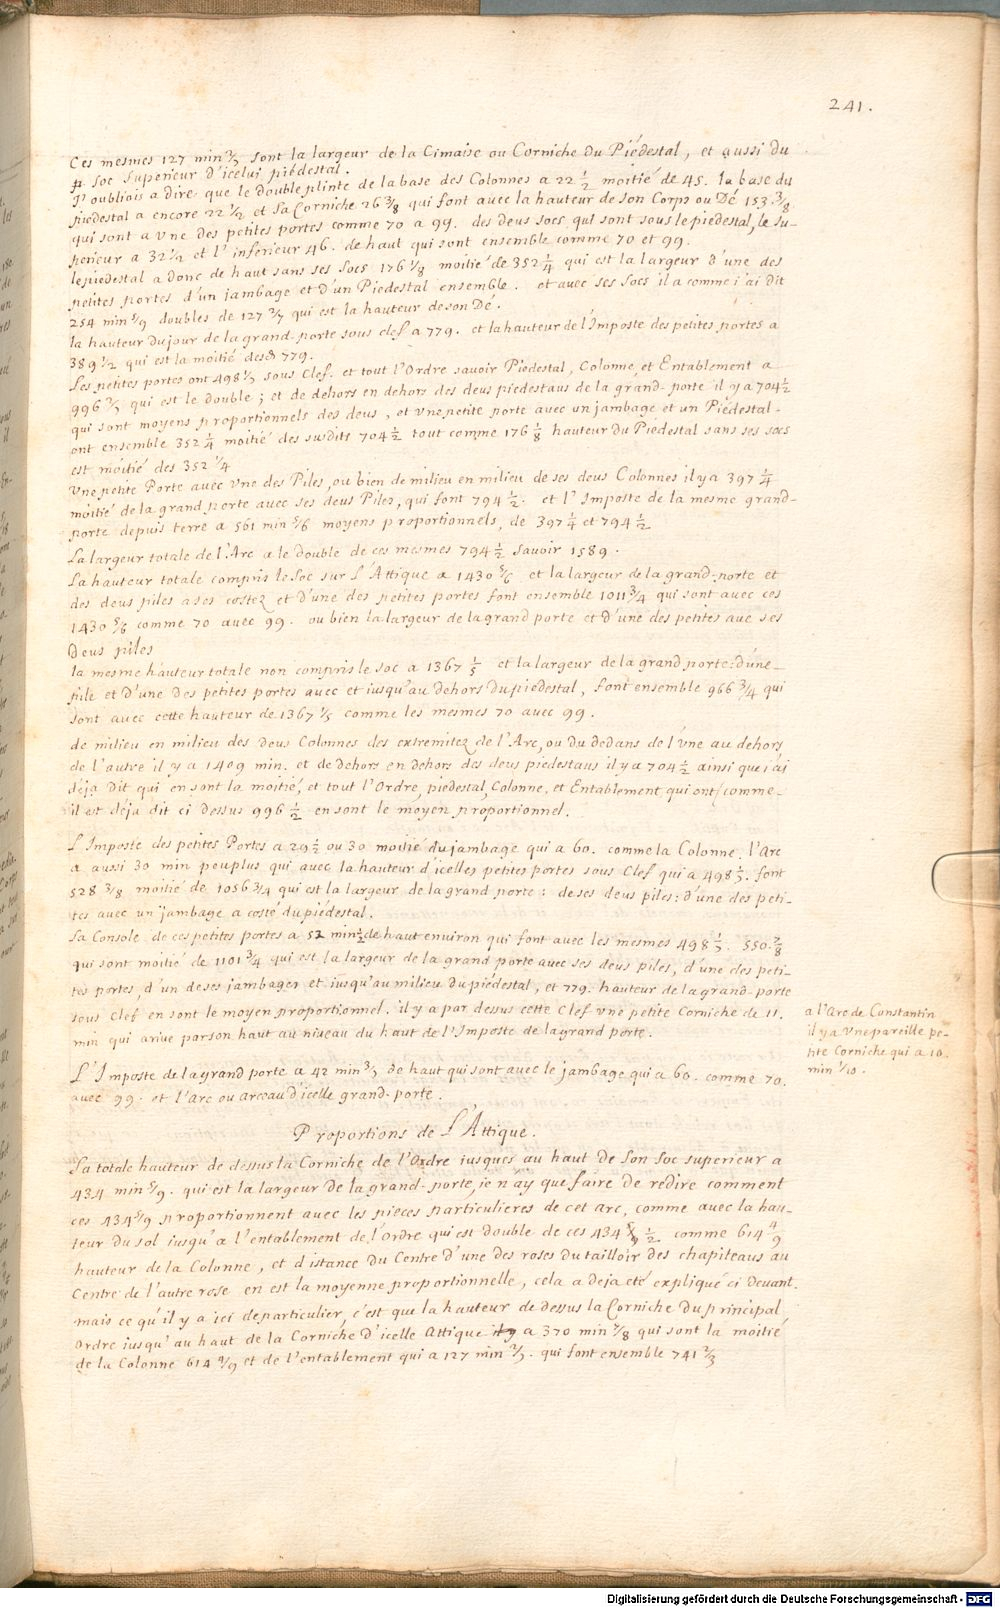 241.
Ces mesmes 127 min 2/7 sont la largeur de la Cimaise ou Corniche du Piédestal, et aussi du
soc superieur d'icelui piédestal.
J'oubliois a dire que le double plinte de la base des Colonnes a 22 1/2 moitié de 45. la base du
piedestal a encore 22 1/2 et sa Corniche 26 3/8 qui font avec la hauteur de son Corps ou Dé 153 3/8
qui sont a vne des petites portes comme 70 a 99. des deus socs qui sont sous le piedestal, le su-
perieur a 32 1/2 et l'inferieur 46. de haut qui sont ensemble comme 70 et 99.
le piedestal a donc de haut sans ses Socs 176 1/8 moitié de 352 1/4 qui est la largeur d'une des
petites portes d'un jambage et d'un Piedestal ensemble. et avec ses Socs il a comme i'ai dit
254 min 5/9 doubles de 127 2/7 qui est la hauteur de son Dé.
la hauteur du jour de la grand-porte sous clef a 779. et la hauteur de l'Imposte des petites portes a
389 1/2 qui est la moitié des 779.
Les petites portes ont 498 1/3 sous Clef. et tout l'Ordre savoir Piedestal, Colonne, et Entablement a
996 2/3 qui est le double; et de dehors en dehors des deus piedestaus de la grand-porte il y a 704 1/2
qui sont moyens proportionnels des deus, et vne petite porte avec un jambage et un Piédestal-
ont ensemble 352 1/4 moitié des susdits 704 1/2 tout comme 176 1/8 hauteur du Piedestal sans ses socs
est moitié des 352 1/4
Vne petite Porte avec vne des Piles, ou bien de milieu en milieu de ses deus Colonnes il y a 397 1/4
moitié de la grand porte avec ses deus Piles, qui font 794 1/2. et l'Imposte de la mesme grand-
porte depuis terre a 561 min 5/6 moyens proportionnels, de 397 1/4 et 794 1/2
La largeur totale de l'Arc a le double de ces mesmes 794 1/2 savoir 1589.
La hauteur totale compris le Soc sur L'Attique a 1430 5/6 et la largeur de la grand-porte et
des deus piles a ses costez et d'une des petites portes font ensemble 1011 3/4 qui sont avec ces
1430 5/6 comme 70 avec 99. ou bien la largeur de la grand porte et d'une des petites avec ses
deus piles
la mesme hauteur totale non compris le soc a 1367 1/5 et la largeur de la grand porte: d'une-
pile et d'une des petites portes avec et iusqu'au dehors du piedestal, font ensemble 966 3/4 qui
sont avec cette hauteur de 1367 1/5 comme les mesmes 70 avec 99.
de milieu en milieu des deus Colonnes des extremitez de l'Arc, ou du dedans de l'vne au dehors
de l'autre il y a 1409 min. et de dehors en dehors des deus piedestaus il y a 704 1/2 ainsi que i'ai
déja dit qui en sont la moitié, et tout l'Ordre, piedestal, Colonne, et Entablement qui ont comme-
il est déja dit ci dessus 996 1/2 en sont le moyen proportionnel.
L'Imposte des petites Portes a 29 1/2 ou 30 moitié du jambage qui a 60. comme la Colonne. l'Arc
a aussi 30 min peuplus qui avec la hauteur d'icelles petites portes sous Clef qui a 498 1/3. font
528 3/8 moitié de 1056 3/4 qui est la largeur de la grand porte: de ses deus piles: d'une des peti-
tes avec un jambage a costé du piédestal.
La Console de ces petites portes a 52 min 1/2 de haut environ qui font avec les mesmes 498 1/3. 550 7/8
qui sont moitié de 1101 3/4 qui est la largeur de la grand porte avec ses deus piles, d'une des peti-
tes portes, d'un de ses jambages et iusqu'au milieu du piédestal, et 779. hauteur de la grand-porte
sous Clef en sont le moyen proportionnel. il y a par dessus cette Clef vne petite Corniche de 11.
min qui arive par son haut au niveau du haut de l'Imposte de la grand porte.
a l'Arc de Constantin
il y a vne pareille pe-
tite Corniche qui a 10.
min 1/10.
L'Imposte de la grand porte a 42 min 2/3 de haut qui sont avec le jambage qui a 60. comme 70.
avec 99. et l'Arc ou arceau d'icelle grand-porte.
Proportions de L'Attique.
La totale hauteur de dessus la Corniche de l'Ordre iusques au haut de son soc superieur a
434 min 5/9. qui est la largeur de la grand-porte, ie n'ay que faire de redire comment
ces 434 5/9 proportionnent avec les pieces particulieres de cet arc, comme avec la hau-
teur du sol iusqu'a l'entablement de l'Ordre qui est double de ces 434 1/2 comme 614 4/9
hauteur de la Colonne, et distance du Centre d'une des roses du tailloir des chapiteaus au
Centre de l'autre rose en est la moyenne proportionnelle, cela a deja eté expliqué ci devant.
mais ce qu'il y a ici de particulier, c'est que la hauteur de dessus la Corniche du principal
Ordre iusqu'au haut de la Corniche d'icelle Attique a 370 min 7/8 qui sont la moitié
de la Colonne 614 4/9 et de l'entablement qui a 127 min 2/7. qui font ensemble 741 2/3
Digitalisierung gefördert durch die Deutsche Forschungsgemeinschaft - DFG